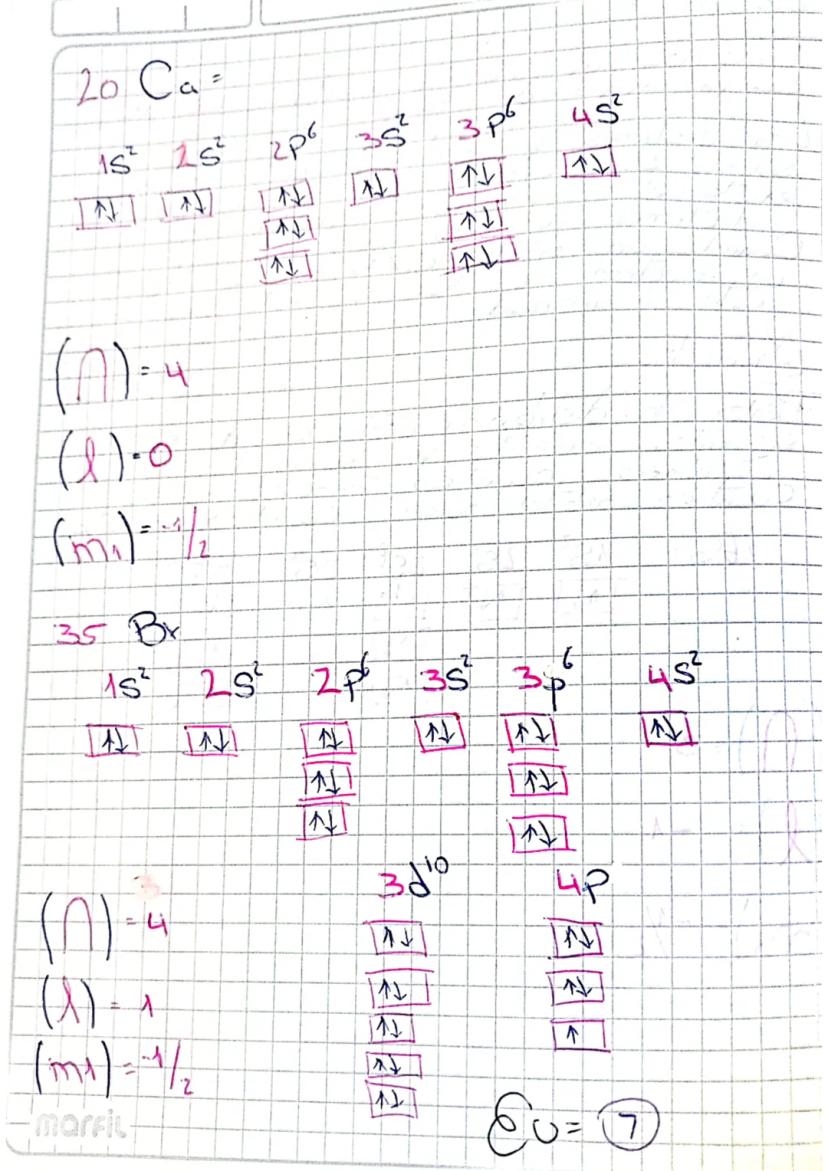 20 Ca=
1s² 2s² 2p⁶ 3s² 3p⁶ 4s²
↑↓ ↑↓ ↑↓ ↑↓ ↑↓ ↑↓
↑↓ ↑↓
↑↓ ↑↓
(n) = 4
(l) = 0
(m₁) = -1/2
35 Br
1s² 2s² 2p⁶ 3s² 3p⁶ 4s²
↑↓ ↑↓ ↑↓ ↑↓ ↑↓ ↑↓
↑↓ ↑↓
↑↓ ↑↓
3d¹⁰ 4p
↑↓ ↑↓
↑↓ ↑↓
↑↓ ↑
↑↓
↑↓
(n) = 4
(l) = 1
(m1) = -1/2
Ev = 7
marfil